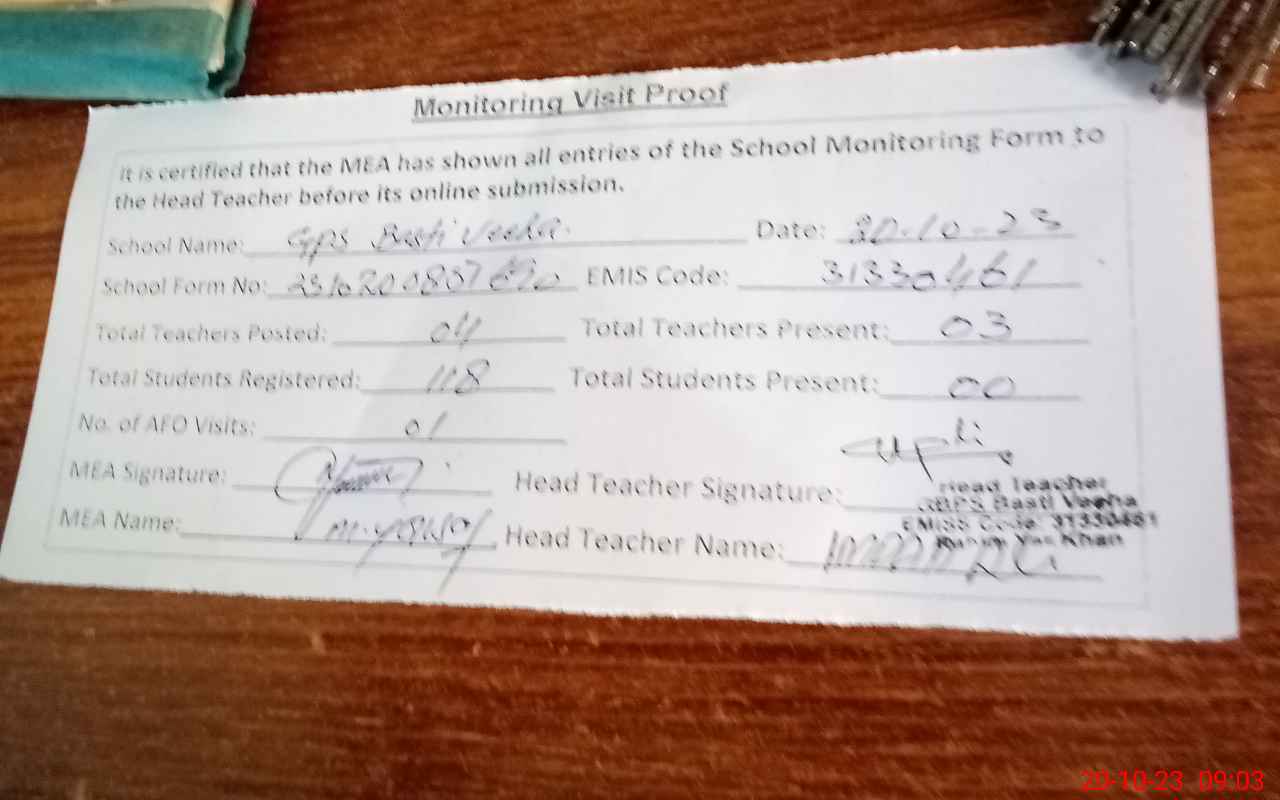 Monitoring Visit Proof
It is certified that the MEA has shown all entries of the School Monitoring Form to
the Head Teacher before its online submission.
School Name: GPS Basti Veeha. Date: 20-10-23
School Form No: EMIS Code: 31330461
Total Teachers Posted: 04 Total Teachers Present: 03
Total Students Registered: 118 Total Students Present: 00
No. of AFO Visits: 01
MEA Signature: Head Teacher Signature:
Head Teacher
Basti Veeha
EMISS Code: 31330461
Rahim Yar Khan
MEA Name: M. Yousaf Head Teacher Name:
20-10-23 09:03